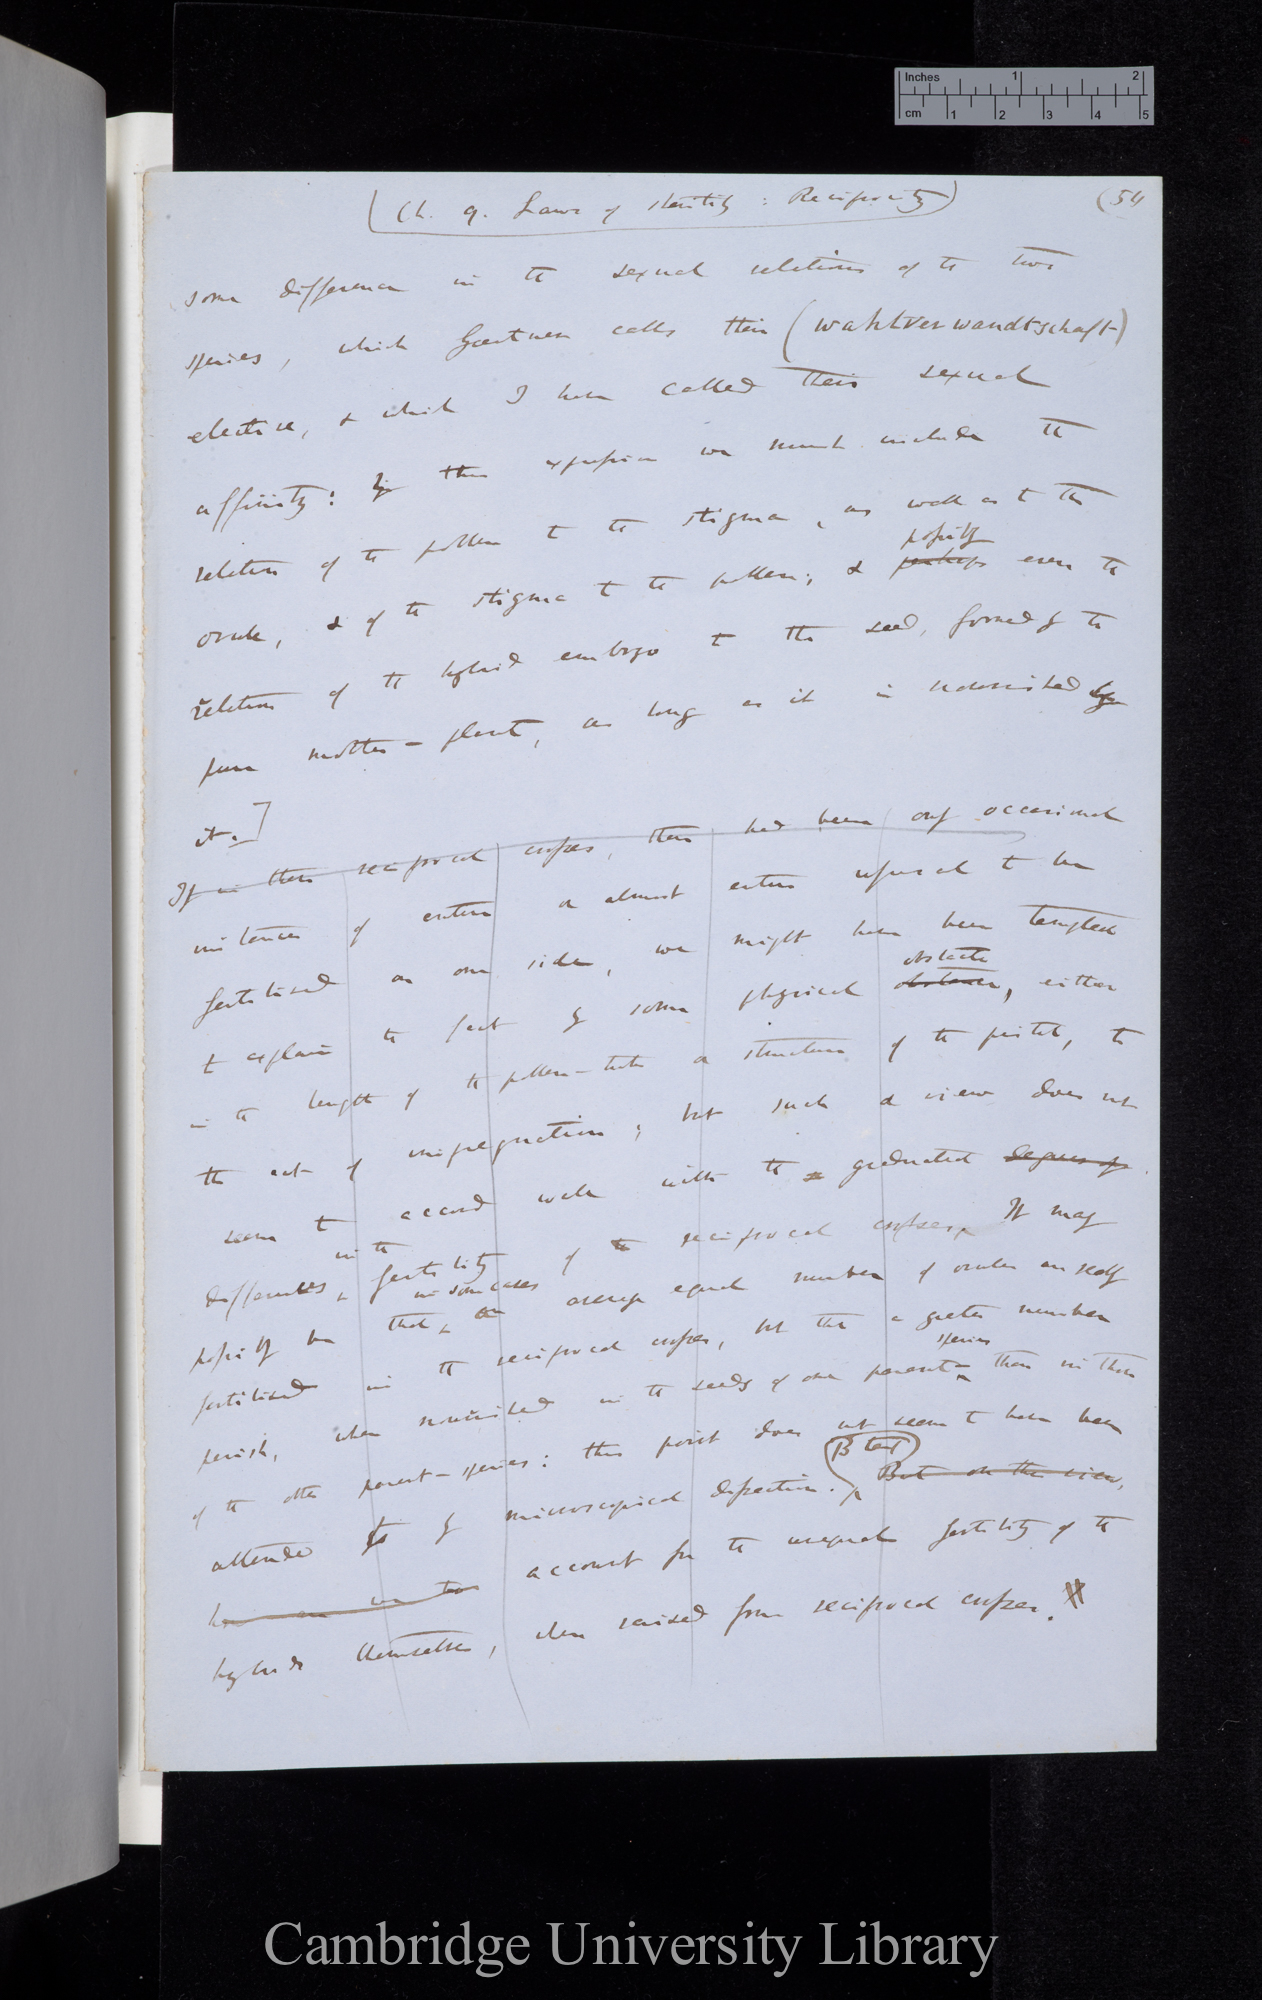 Inches 1 2
cm 1 2 3 4 5
(Ch. 9. Laws of Sterility : Reciprocity)
(54
some difference in the sexual relations of the two
species, which Gaertner calls their (wahlverwandtschaft)
elective, & which I have called their sexual
affinity: By this expression we must include the
relation of the pollen to the stigma, as well as to the
possibly
ovule, & of the stigma to the pollen; & perhaps even the
relation of the hybrid embryo to the seed, formed by the
pure mother-plant, as long as it is nourished by
it.]
If in these reciprocal crosses, there had been only occasional
instances of entire or almost entire refusal to be
fertilised on one side, we might have been tempted
obstacle
to explain the fact by some physical obstance, either
in the length of the pollen-tube or structure of the pistil, to
the act of impregnation; but such a view does not
seem to accord well with the graduated degrees of
in the
differences, fertility of the reciprocal crosses. It may
in some cases
possibly be that, an average equal number of ovules are really
fertilised in the reciprocal crosses, but that a greater number
species
perish, when nourished in the seeds of one parent than in those
of the other parent-species: this point does not seem to have been
B text
attended to by microscopical dissection. But on this view,
how are we to account for the unequal fertility of the
hybrids themselves, when raised from reciprocal crosses.
Cambridge University Library